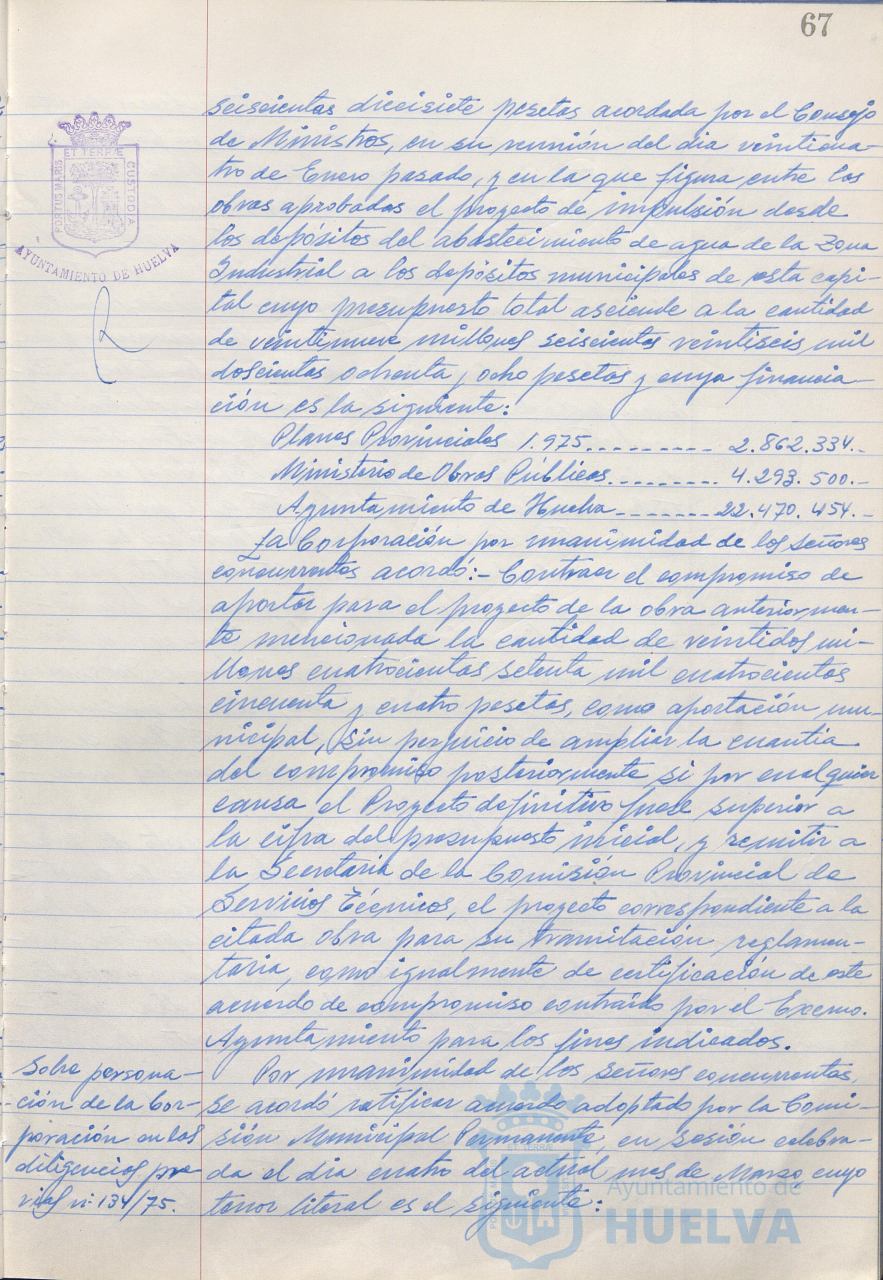 67
seiscientas diecisiete pesetas acordada por el Consejo
de Ministros, en su reunión del dia veinticua-
tro de Enero pasado, y en la que figura entre las
obras aprobadas el proyecto de impulsión desde
los depósitos del abastecimiento de agua de la Zona
Industrial a los depósitos municipales de esta capi-
tal cuyo presupuesto total asciende a la cantidad
de veintinueve millones seiscientas veintiseis mil
doscientas ochenta y ocho pesetas y cuya financia-
ción es la siguiente:
Planes Provinciales 1.975......... 2.862.334.-
Ministerio de Obras Públicas......... 4.293.500.-
Ayuntamiento de Huelva ------- 22.470.454.-
La Corporación por unanimidad de los señores
concurrentes acordó:- Contraer el compromiso de
aportar para el proyecto de la obra anteriormen-
te mencionada la cantidad de veintidos mi-
llones cuatrocientas setenta mil cuatrocientas
cincuenta y cuatro pesetas, como aportación mu-
nicipal, sin perjuicio de ampliar la cuantia
del compromiso posteriormente, si por cualquier
causa el Proyecto definitivo fuese superior a
la cifra del presupuesto inicial, y remitir a
la Secretaria de la Comisión Provincial de
Servicios Técnicos, el proyecto correspondiente a la
citada obra para su tramitación reglamen-
taria, como igualmente de certificación de este
acuerdo de compromiso contraido por el Excmo.
Ayuntamiento para los fines indicados.
Sobre persona-
ción de la Cor-
poración en las
diligencias pre-
vias nº 134/75.
Por unanimidad de los señores concurrentes,
se acordó ratificar acuerdo adoptado por la Comi-
sión Municipal Permanente, en sesión celebra-
da el dia cuatro del actual mes de Marzo, cuyo
tenor literal es el siguiente:
PORTUS MARIS
ET TERRÆ
CUSTODIA
AYUNTAMIENTO DE HUELVA
Ayuntamiento de
HUELVA